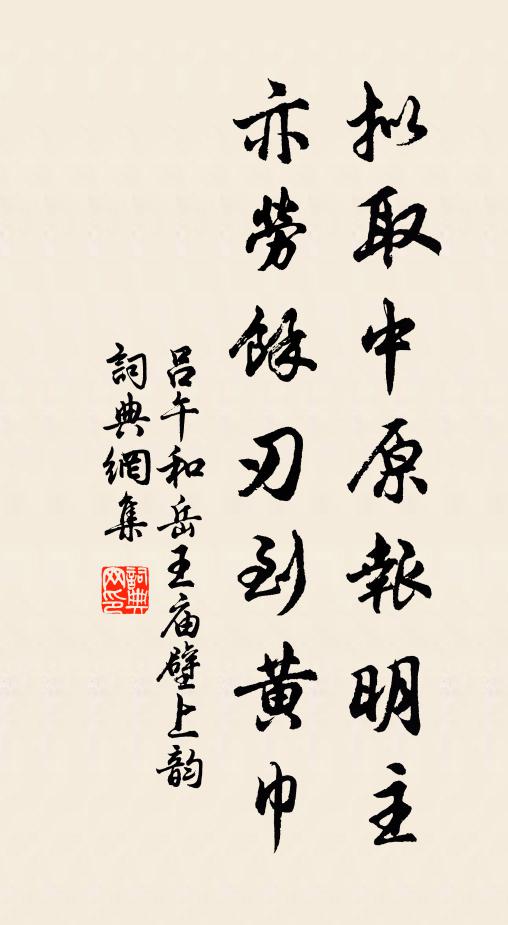 拟取中原報明主
亦勞餘刃到黃巾
吕午和岳王庙壁上韵
詞典網集
詞典
网印